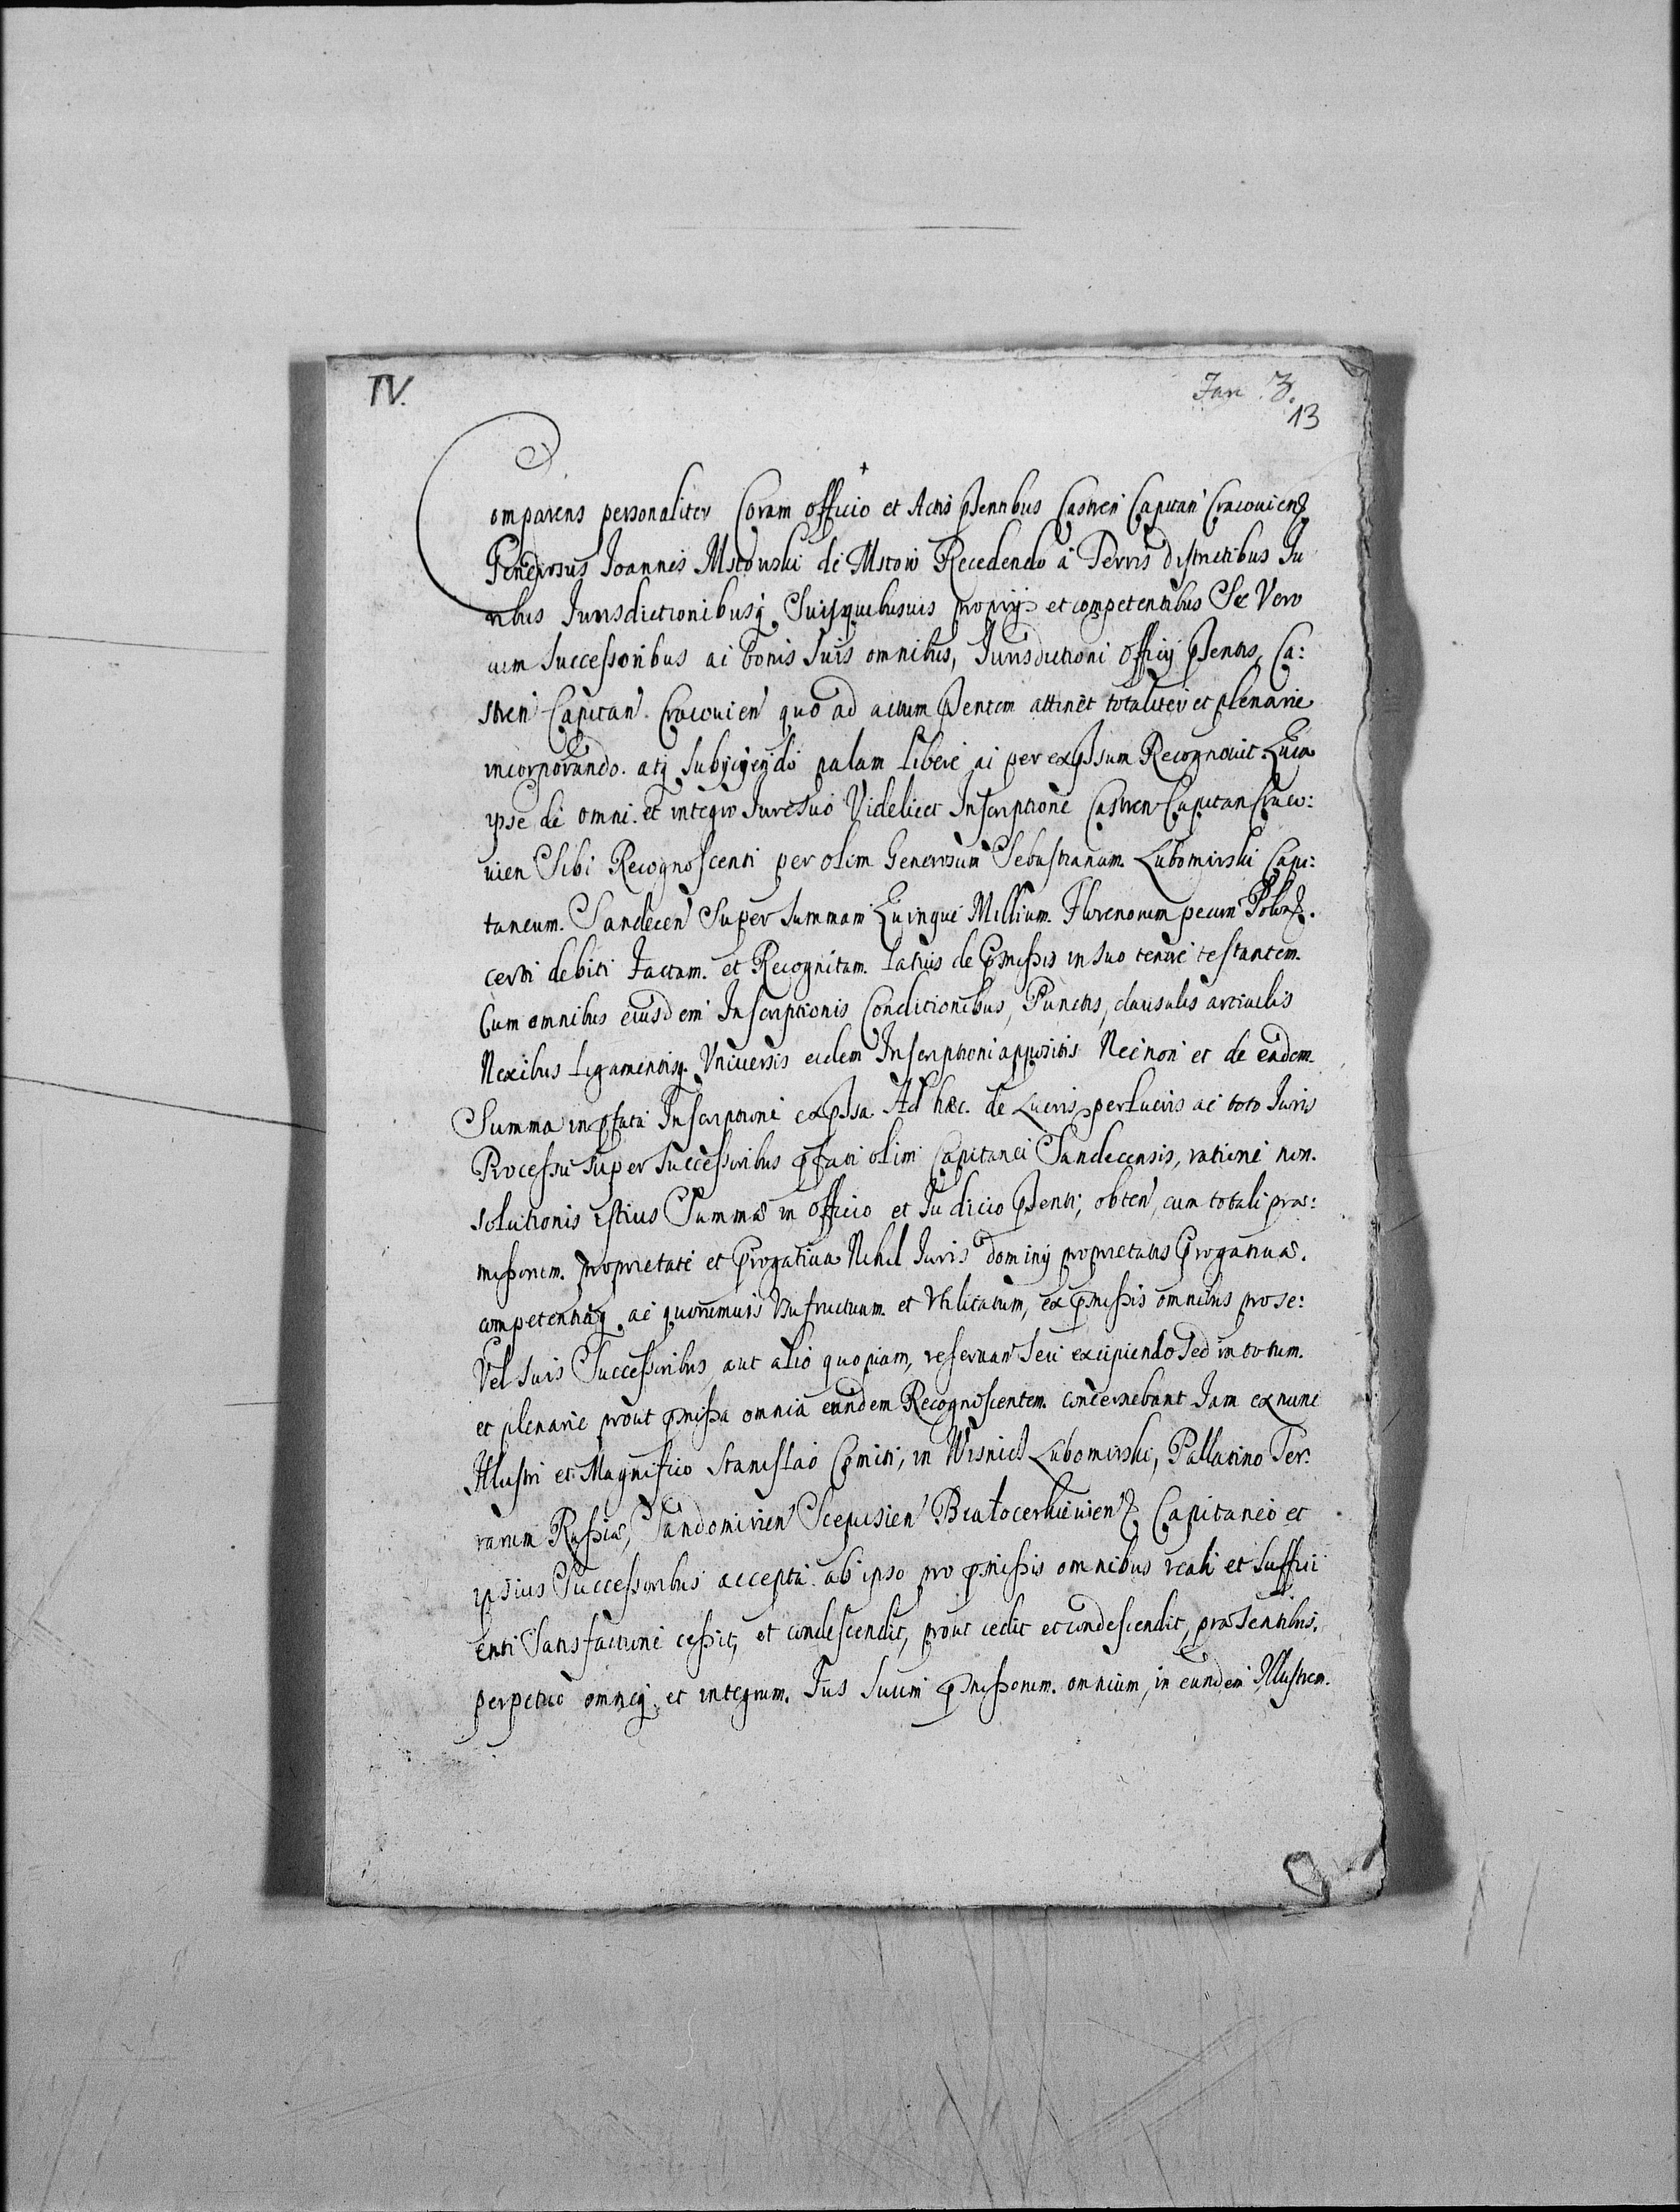 IV.
Jan 3.
13
Comparens personaliter Coram officio et Actis psentibus Castren Capitan Cracovien
Generosus Joannes Mstowski de Mstow Recedendo à Terris districtibus Iu
ribus Iurisdictionibusq Suisquibusuis proprijs et competentibus Se Vero
cum Successoribus ac bonis Suis omnibus, Iurisdictioni Officij psentis, Ca:
stren Capitan. Cracouien quo ad actum psentem attinet totaliter et plenarie
incorporando. atq subijciendo palam libere ac per expssum Recognouit. Quia
ipse de omni. et integro Iure Suo Videlicet Inscriptione Castren Capitan Craco:
uien Sibi Recognoscenti per olim Generosum Sebastianum. Lubomirski Capi:
taneum. Sandecen Super Summam Quinque Millium. Florenorum pecun Polon.
certi debiti Factam. et Recognitam. Latius de pmissis in suo tenore testantem.
Cum omnibus eiusdem Inscriptionis Conditionibus, Punctis, clausulis articulis
Nexibus Ligamentisq. Vniuersis eidem Inscriptioni appositis Necnon et de eadem
Summa in pfata Inscriptione expssa Ad hæc. de Lucris perlucris ac toto Iuris
Processu super Successoribus pfati olim Capitanei Sandecensis, ratione non.
solutionis istius Summæ in Officio et Iudicio psenti, obten, cum totali præ:
missorum. proprietate et progatiua Nihil Iuris dominij proprietatis progatiuæ.
competentiæq. ac quorumuis Vsufructuum. et Vtilitatum, ex pmissis omnibus pro se:
Vel suis Successoribus aut alio quopiam, reseruan seu excipiendo Sed in totum.
et plenarie prout pmissa omnia eundem Recognoscentem. concernebant Iam ex nunc
Illustri et Magnifico Stanislao Comiti, in Wisnicz Lubomirski, Pallatino Ter:
rarum Russiæ, Sandomirien Scepusien Białocerkieuien Capitaneo et
ipsius Successoribus accepta. ab ipso pro pmissis omnibus reali et suffici
enti Satisfactione cessit, et condescendit, prout cedit et condescendit, præsentibus.
perpetuo omneq. et integrum. Ius Suum pmissorum. omnium, in eundem Illustrem.